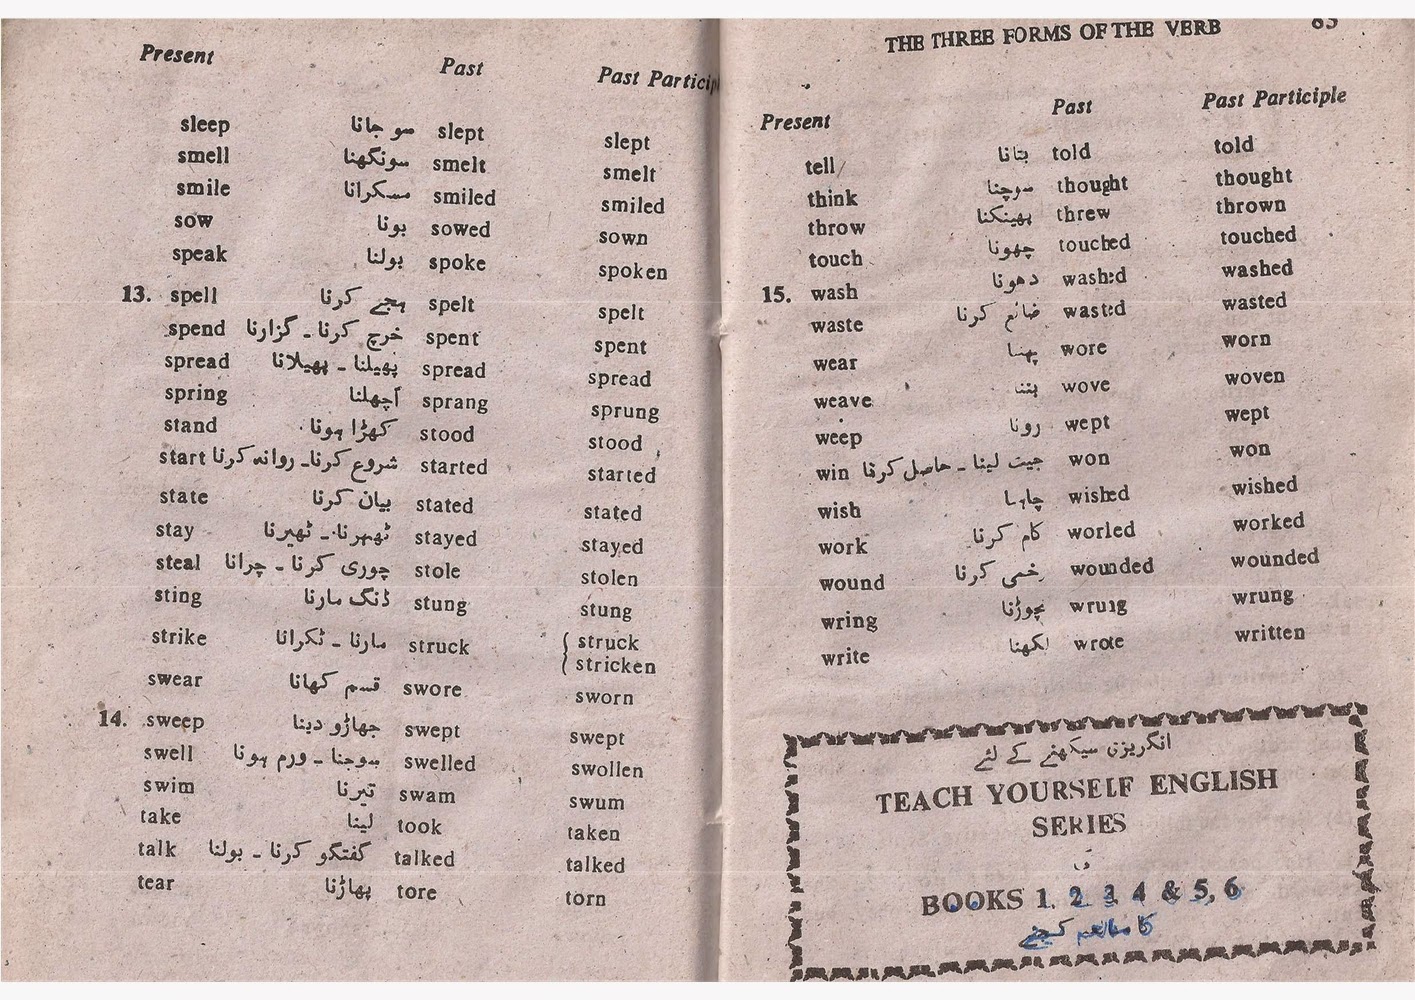 Present Past Past Particip
sleep سو جانا slept slept
smell سونگھنا smelt smelt
smile مسکرانا smiled smiled
sow بونا sowed sown
speak بولنا spoke spoken
13. spell ہجے کرنا spelt spelt
spend خرچ کرنا ۔ گزارنا spent spent
spread پھیلنا ۔ پھیلانا spread spread
spring اُچھلنا sprang sprung
stand کھڑا ہونا stood stood
start شروع کرنا ۔ روانہ کرنا started started
state بیان کرنا stated stated
stay ٹھہرنا ۔ ٹھیرنا stayed stayed
steal چوری کرنا ۔ چرانا stole stolen
sting ڈنگ مارنا stung stung
strike مارنا ۔ ٹکرانا struck { struck
{ stricken
swear قسم کھانا swore sworn
14. sweep جھاڑو دینا swept swept
swell سوجنا ۔ ورم ہونا swelled swollen
swim تیرنا swam swum
take لینا took taken
talk گفتگو کرنا ۔ بولنا talked talked
tear پھاڑنا tore torn
THE THREE FORMS OF THE VERB
Present Past Past Participle
tell بتانا told told
think سوچنا thought thought
throw پھینکنا threw thrown
touch چھونا touched touched
15. wash دھونا washed washed
waste ضائع کرنا wasted wasted
wear wore worn
weave wove woven
weep رونا wept wept
win جیت لینا ۔ حاصل کرنا won won
wish wished wished
work کام کرنا worled worked
wound زخمی کرنا wounded wounded
wring نچوڑنا wrung wrung
write لکھنا wrote written
انگریزی سیکھنے کے لئے
TEACH YOURSELF ENGLISH
SERIES
BOOKS 1, 2, 3, 4 & 5, 6
کا مطالعہ کیجئے